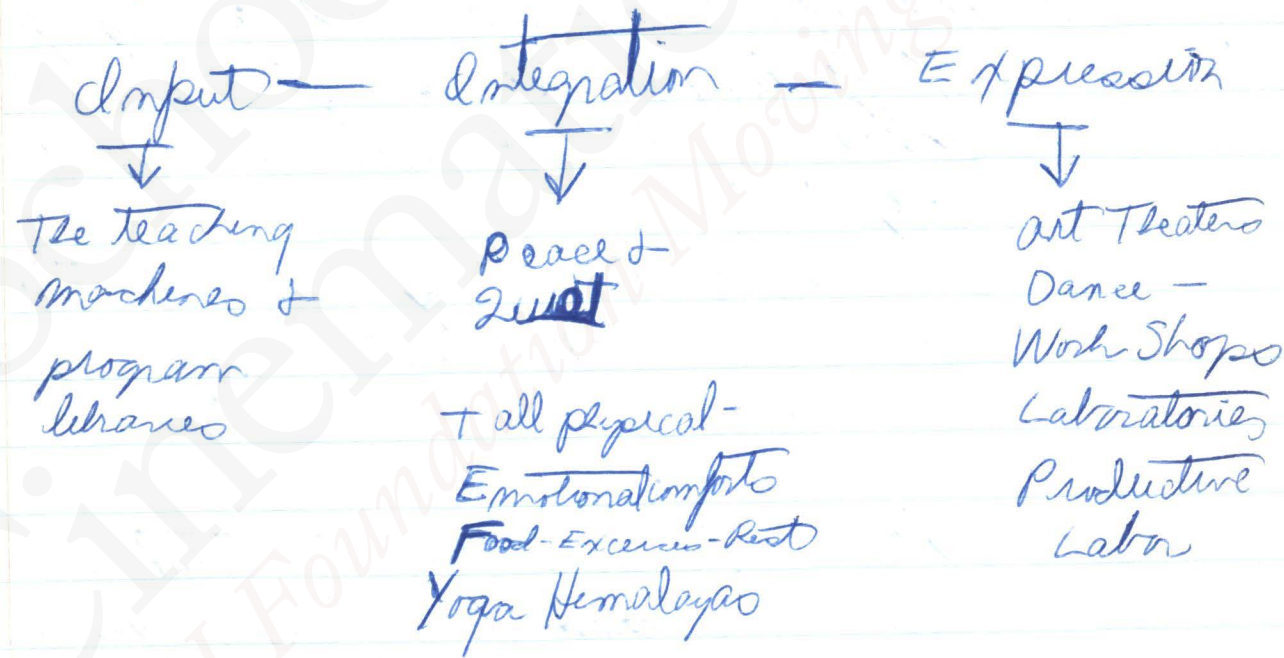 Input — Integration — Expression
The teaching
machines &
program
libraries
Peace &
Quiot
+ all physical-
Emotional comforts
Food-Excercies-Rest
Yoga Himalayas
Art Theaters
Dance —
Work Shops
Laboratories
Productive
Labor
Foundation Moving